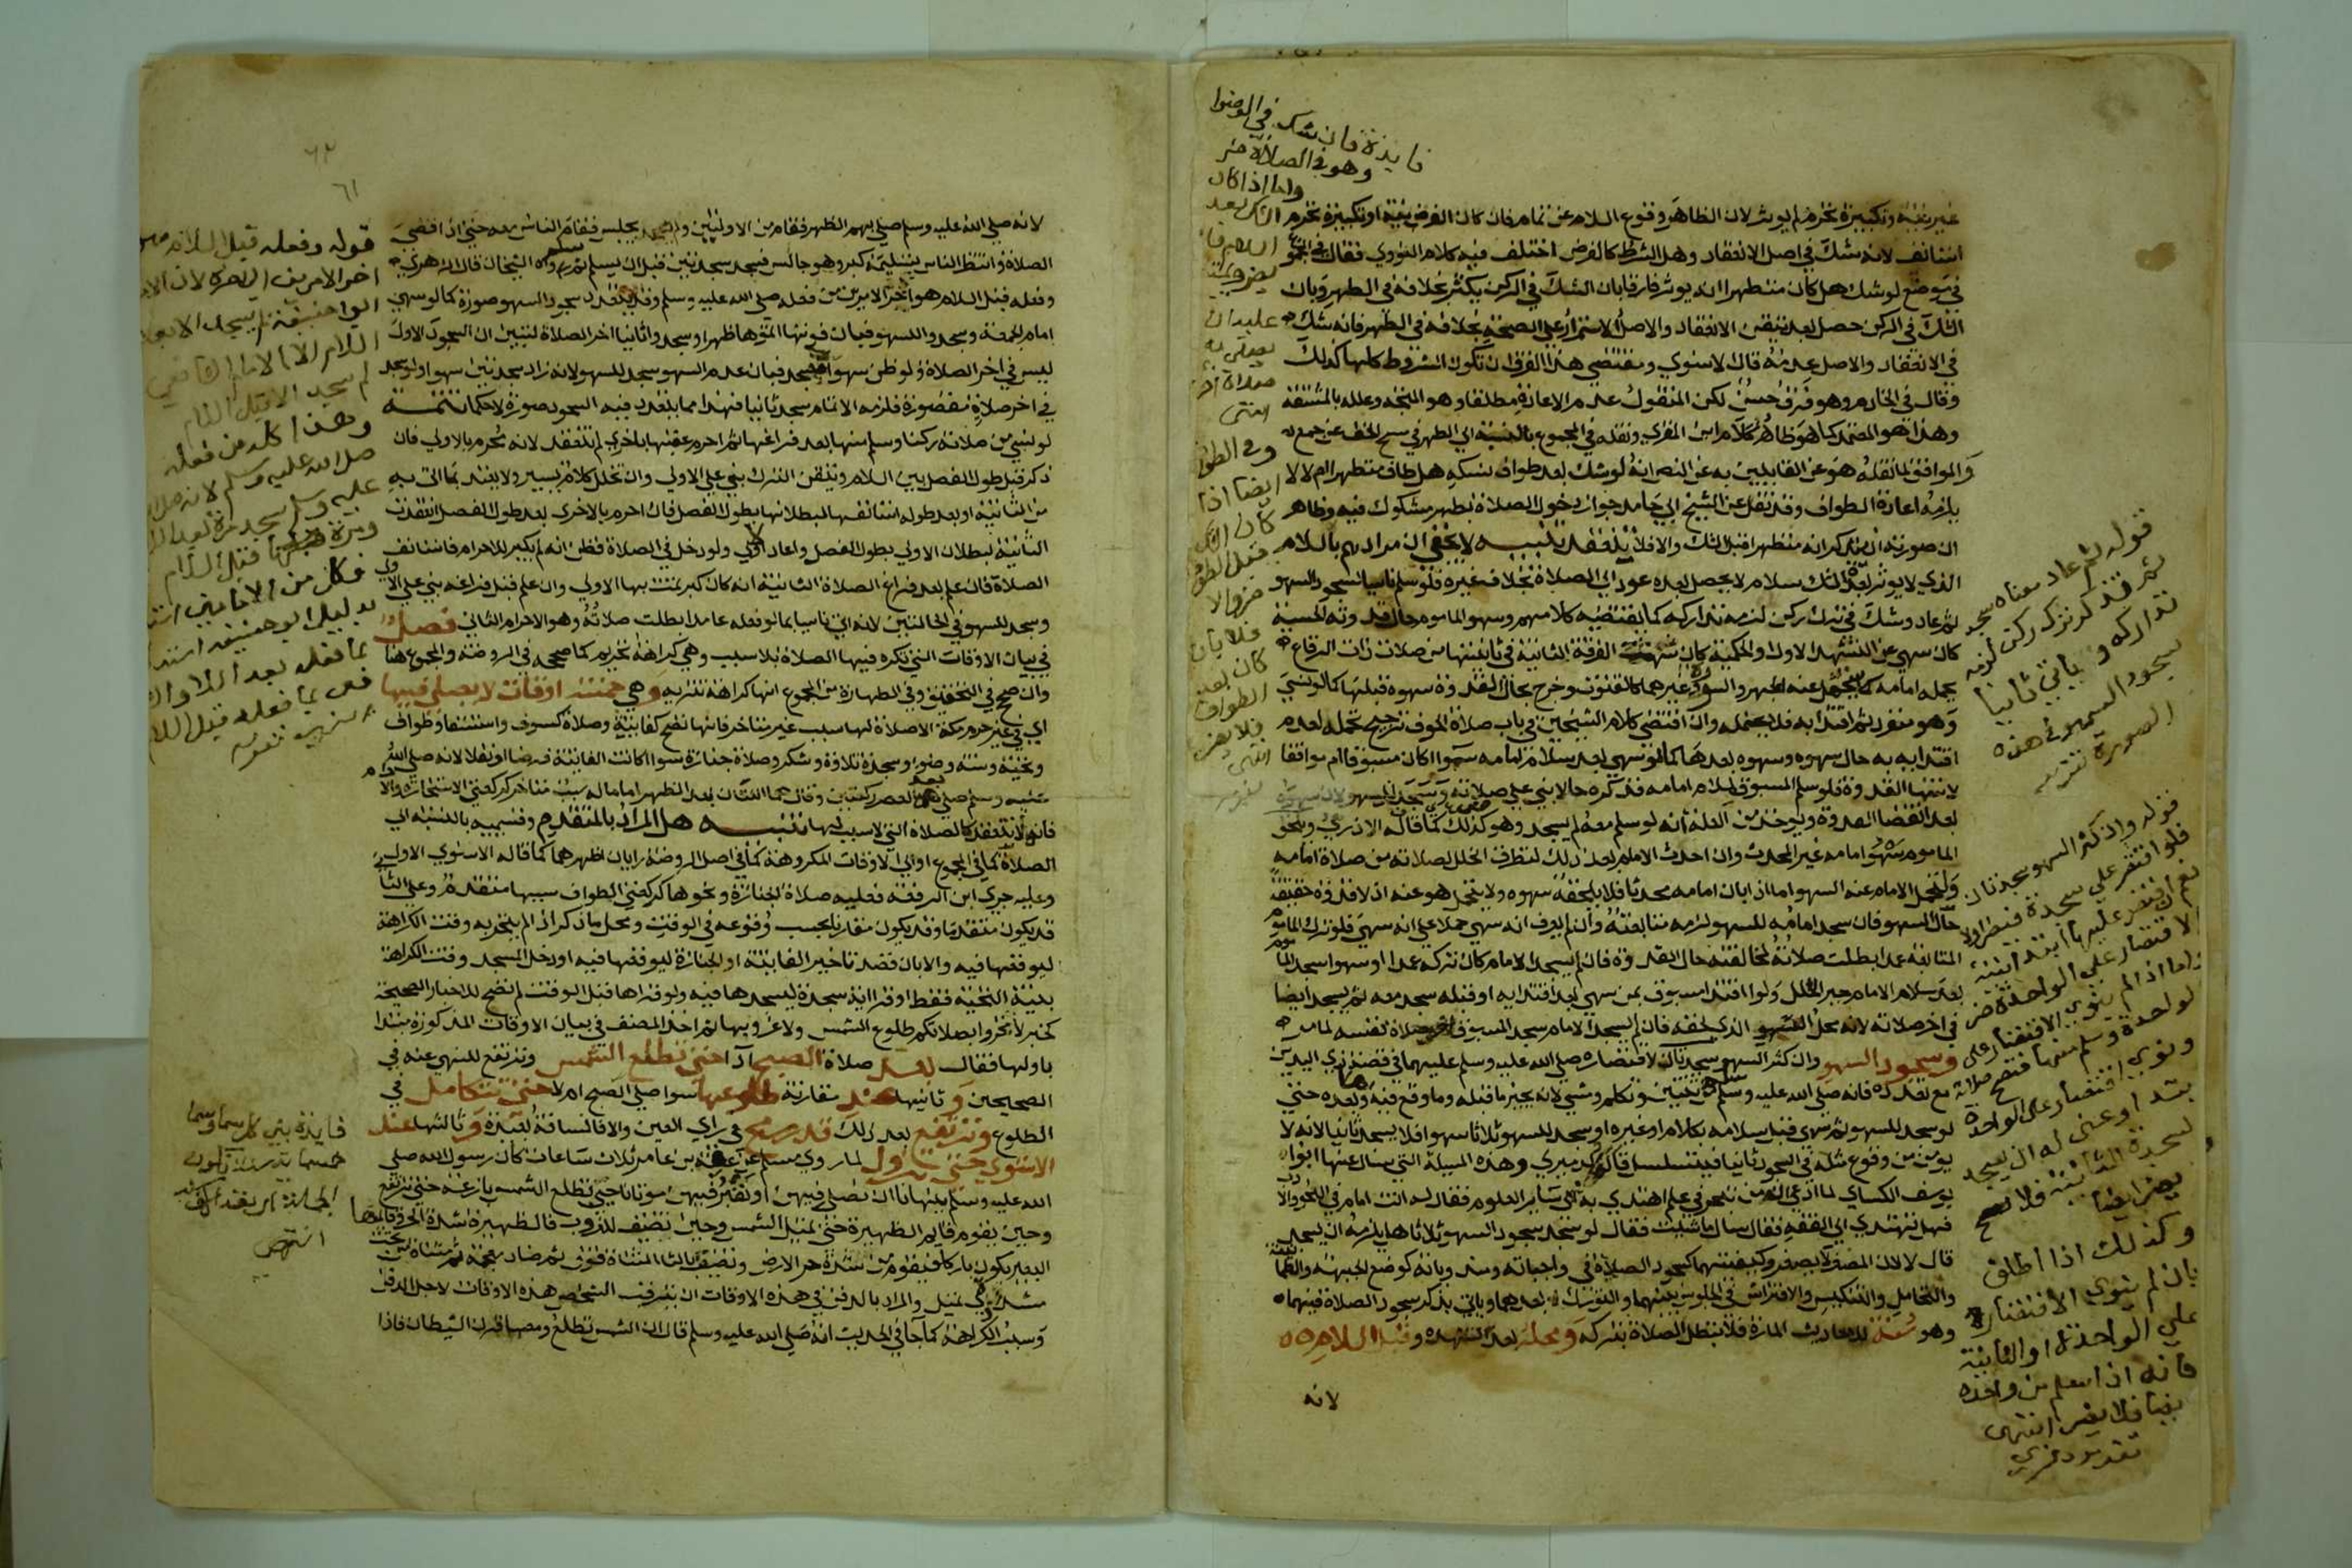 غير نية وتكبيرة تحرم لم يوثر لان الظاهر وقوع السلام عن تمام فان كان الفرض نية او تكبيرة تحرم
استانف لانه شك في اصل الانعقاد وهل الشرط كالفرض اختلف فيه كلام النووي فقال في المجموع
في موضع لو شك هل كان متطهرا انه يوثر فارقا بان الشك في الركن يكثر بخلافه في الطهر وبان
الشك في الركن حصل بعد تيقن الانعقاد والاصل الاستمرار علي الصحة بخلافه في الطهر فانه شك
في الانعقاد والاصل عدمه قال الاسنوي ومقتضي هذا الفرق ان تكون الشروط كلها كذلك
وقال في الخادم وهو فرق حسن لكن المنقول عدم الاعادة مطلقا وهو المتجه وعلله بالمشقة
وهذا هو المعتمد كما هو ظاهر كلام ابن المقري ونقله في المجموع بالنسبة الي الطهر في مسح الخف عن جمع
والموافق لما نقله هو عن القايلين به عن النص انه لو شك بعد طواف نسكه هل طاف متطهرا ام لا لا
يلزمه اعادة الطواف وقد نقل عن الشيخ ابي حامد جواز دخول الصلاة بطهر مشكوك فيه وظاهر
ان صورته ان يتذكر انه متطهرا قبل الشك والا فلا تنعقد تنبيه لا يخفي ان مرادهم بالسلام
الذي لا يوثر بعده الشك سلام لا يحصل بعده عود الي الصلاة بخلاف غيره فلو سلم ناسيا لسجود السهو
ثم عاد وشك في ترك ركن لزمه تداركه كما يقتضيه كلامهم وسهو الماموم حال قدوته الحسية
كان سهي عن التشهد الاول او الحكمية كان سهت الفرقة الثانية في ثانيتها من صلات ذات الرقاع
يحمله امامه كما يتحمل عنه الجهر والسورة وغيرهما كالقنوت وخرج بحال القدوة سهوه قبلها كما لو سهي
وهو منفرد ثم اقتدا به فلا يتحمله وان اقتضي كلام الشيخين في باب صلاة الخوف ترجيح تحمله لعدم
اقتدايه به حال سهوه وسهوه بعدها كما لو سهي بعد سلام امامه سوا اكان مسبوقا ام موافقا
لانتها القدوة فلو سلم المسبوق بسلام امامه فذكره حالا بني علي صلاته وسجد للسهو لان سهوه
بعد انقضا القدوة ويوخذ من العلة انه لو سلم معه لم يسجد وهو كذلك كما قاله الاذرعي ويلحق
الماموم سهو امامه غير المحدث وان احدث الامام بعد ذلك لتطرق الخلل لصلاته من صلاة امامه
ولتحمل الامام عنه السهو اما اذا بان امامه محدثا فلا يلحقه سهوه ولا يتحمل هو عنه اذ لا قدوة حقيقة
حال السهو فان سجد امامه للسهو لزمه متابعته وان لم يعرف انه سهي حملا علي انه سهي فلو ترك الماموم
المتابعة عمدا بطلت صلاته لمخالفته حال القدوة فان لم يسجد الامام كان تركه عمدا او سهوا سجد الماموم
بعد سلام الامام جبر الخلل ولو اقتدا مسبوق بمن سهي بعد اقتدايه او قبله سجد معه ثم يسجد ايضا
في اخر صلاته لانه محل السهو الذي لحقه فان لم يسجد الامام سجد المسبوق اخر صلاة نفسه لما مر
وسجود السهو وان كثر السهو سجدتان لاقتصاره صلي الله عليه وسلم عليهما في قصة ذي اليدين
مع تعدده فانه صلي الله عليه وسلم سلم من ثنتين وتكلم ومشي لانه يجبر ما قبله وما وقع فيه وبعده حتي
لو سجد للسهو ثم سهي قبل سلامه بكلام او غيره او سجد للسهو ثلاثا سهوا فلا يسجد ثانيا لانه لا
يومن من وقوع مثله في السجود ثانيا فيتسلسل قاله الدميري وهذه المسيلة التي سال عنها ابوا
يوسف الكساي لما ادعي ان من تبحر في علم اهتدي به الي ساير العلوم فقال له انت امام في النحو والادب
فهل تهتدي الي الفقه فقال سل ما شيت فقال لو سجد سجود السهو ثلاثا هل يلزمه ان يسجد
قال لا لان المصغر لا يصغر وكيفيتهما كسجود الصلاة في واجباته ومندوباته كوضع الجبهة والطمانينة
والتحامل والتنكيس والافتراش في الجلوس بينهما والتورك بعدهما وياتي بذكر سجود الصلاة فيهما
وهو سنة للاحاديث المارة فلا تبطل الصلاة بتركه ومحله بعد التشهد وقبل السلام
لانه
فايدة فان شك في الوضوا
وهو في الصلاة ضر
واما اذا كان
الشك بعد
السلام فلا
يضر ويجب
عليه ان
يصلي به
صلاة اخري
انتهي
وفي الطواف
ايضا اذا
كان الشك
قبل الطواف
ضر والا
فلا بان
كان بعد
الطواف
فلا يضر
انتهي
قوله ثم عاد معناه سجد
ثم قد كر ترك ركن لزمه
تداركه و ياتي ثانيا
سجود السهو في هذه
الصورة تقرير
قوله وان كثر السهو سجدتان
فلو اقتصر علي سجدة فينظر اولا
نعم ان اقتصر عليها ابتدا بنية
الاقتصار علي الواحدة ضر
واما اذا لم ينوي الاقتصار علي
الواحدة وسلم منها فتصح صلاته
ونوي اقتصار علي الواحدة
بتدا وعني له ان يسجد
السجدة الثانية فلا تصح
يضر ايضا
وكذلك اذا اطلق
بان لم ينوي الاقتصار
علي الواحدة او الثانية
فانه اذا سلم من واحدة
بقيا فلا يضر انتهي
تقرير
٦٢
٦١
لانه صلي الله عليه وسلم صلي بهم الظهر فقام من الاولتين ولم يجلس فقام الناس معه حتي اذا قضي
الصلاة وانتظر الناس تسليمه كبر وهو جالس فسجد سجدتين قبل ان يسلم ثم سلم رواه الشيخان قال الزهري
وفعله قبل السلام هو اخر الامرين من فعله صلي الله عليه وسلم وقد يتعدد سجود السهو صورة كما لو سهي
امام الجمعة وسجدوا للسهو فبان فوتها اتموها ظهرا وسجدوا ثانيا اخر الصلاة لتبين ان السجود الاول
ليس في اخر الصلاة ولو ظن سهوا فسجد فبان عدم السهو سجد للسهو لانه زاد سجدتين سهوا ولو سجد
في اخر صلاة مقصورة فلزمه الاتمام سجد ثانيا فهذا مما يتعدد فيه السجود صورة لا حكما تتمة
لو نسي من صلاته ركنا وسلم منها بعد فراغها ثم احرم عقبها باخري لم تنعقد لانه محرم بالاولي فان
ذكر قبل طول الفصل بين السلام وتيقن الترك بني علي الاولي وان تخلل كلام يسير ولا يعتد بما اتي به
من الثانية او بعد طوله استانفها لبطلانها بطول الفصل فان احرم بالاخري بعد طول الفصل انعقدت
الثانية لبطلان الاولي بطول الفصل واعاد الاولي ولو دخل في الصلاة فظن انه لم يكبر للاحرام فاستانف
الصلاة فان علم بعد فراغ الصلاة الثانية انه كان كبر تمت بها الاولي وان علم قبل فراغه بني علي الاولي
وسجد للسهو في الحالتين لانه اتي ناسيا بما لو فعله عامدا بطلت صلاته وهو الاحرام الثاني فصل
في بيان الاوقات التي تكره فيها الصلاة بلا سبب وهي كراهة تحريم كما صححه في الروضة والمجموع هنا
وان صحح في التحقيق وفي الطهارة من المجموع انها كراهة تنزيه وهي خمسة اوقات لا يصلي فيها
اي في غير حرم مكة الا صلاة لها سبب غير متاخر فانها تصح كفايتة وصلاة كسوف واستسقا وطواف
وتحية وسنة وضوء وسجدة تلاوة وشكر وصلاة جنازة سوا اكانت الفائتة فرضا او نفلا لانه صلي الله
عليه وسلم صلي بعد العصر ركعتين وقال هما اللتان بعد الظهر اما ما له سبب متاخر كركعتي الاستخارة والاحرام
فانها لا تنعقد كالصلاة التي لا سبب لها تنبيه هل المراد بالمتقدم وقسيميه بالنسبة الي
الصلاة كما في المجموع او الي الاوقات المكروهة كما في اصل الروضة رايان اظهرهما كما قاله الاسنوي الاول
وعليه جري ابن الرفعة فعليه صلاة الجنازة ونحوها كركعتي الطواف سببها متقدم وعلي الثاني
قد يكون متقدما وقد يكون مقارنا بحسب وقوعه في الوقت ومحل ما ذكر اذا لم يتحر به وقت الكراهة
ليوقعها فيه والا بان قصد تاخير الفايتة او الجنازة ليوقعها فيه او دخل المسجد وقت الكراهة
بنية التحية فقط او قرا اية سجدة ليسجدها فيه ولو قراها قبل الوقت لم تصح للاخبار الصحيحة
كخبر لا تحروا بصلاتكم طلوع الشمس ولا غروبها ثم اخذ المصنف في بيان الاوقات المذكورة مبتدا
باولها فقال بعد صلاة الصبح ادا حتي تطلع الشمس وترتفع للنهي عنه في
الصحيحين و ثانيها عند مقارنة طلوعها سوا صلي الصبح ام لا حتي تتكامل في
الطلوع وترتفع بعد ذلك قدر رمح في راي العين والا فالمسافة بعيدة و ثالثها عند
الاستوي حتي تزول لما روي مسلم عن عقبة بن عامر ثلاث ساعات كان رسول الله صلي
الله عليه وسلم ينهانا ان نصلي فيهن او نقبر فيهن موتانا حتي تطلع الشمس بازغة حتي ترتفع
وحين يقوم قايم الظهيرة حتي تميل الشمس وحين تضيف للغروب فالظهيرة شدة الحر وقايمها
البعير يكون باركا فيقوم من شدة حر الارض وتضيف بالتا المثناة فوق ثم ضاد معجمة ثم مثناة من تحت
مشددة اي تميل والمراد بالدفن في هذه الاوقات ان يترقب الشخص هذه الاوقات لاجل الدفن
وسبب الكراهة كما جا في الحديث انه صلي الله عليه وسلم قال ان الشمس تطلع ومعها قرن الشيطان فاذا
قوله وفعله قبل السلام هو
اخر الامرين الي اخره لان الامام
ابوا حنيفة لم يسجد الا بعد
السلام الا الامام الشافعي
لم يسجد الا قبل السلام
وهذا كله من فعله
صلي الله عليه وسلم لانه صلي الله
عليه وسلم سجد مرة بعد السلام
ومرة قبل السلام
فكل من الامامين استدل
بدليل ابو حنيفة استدل
بما فعله بعد السلام
فعي بما فعله قبل السلام
فايدة